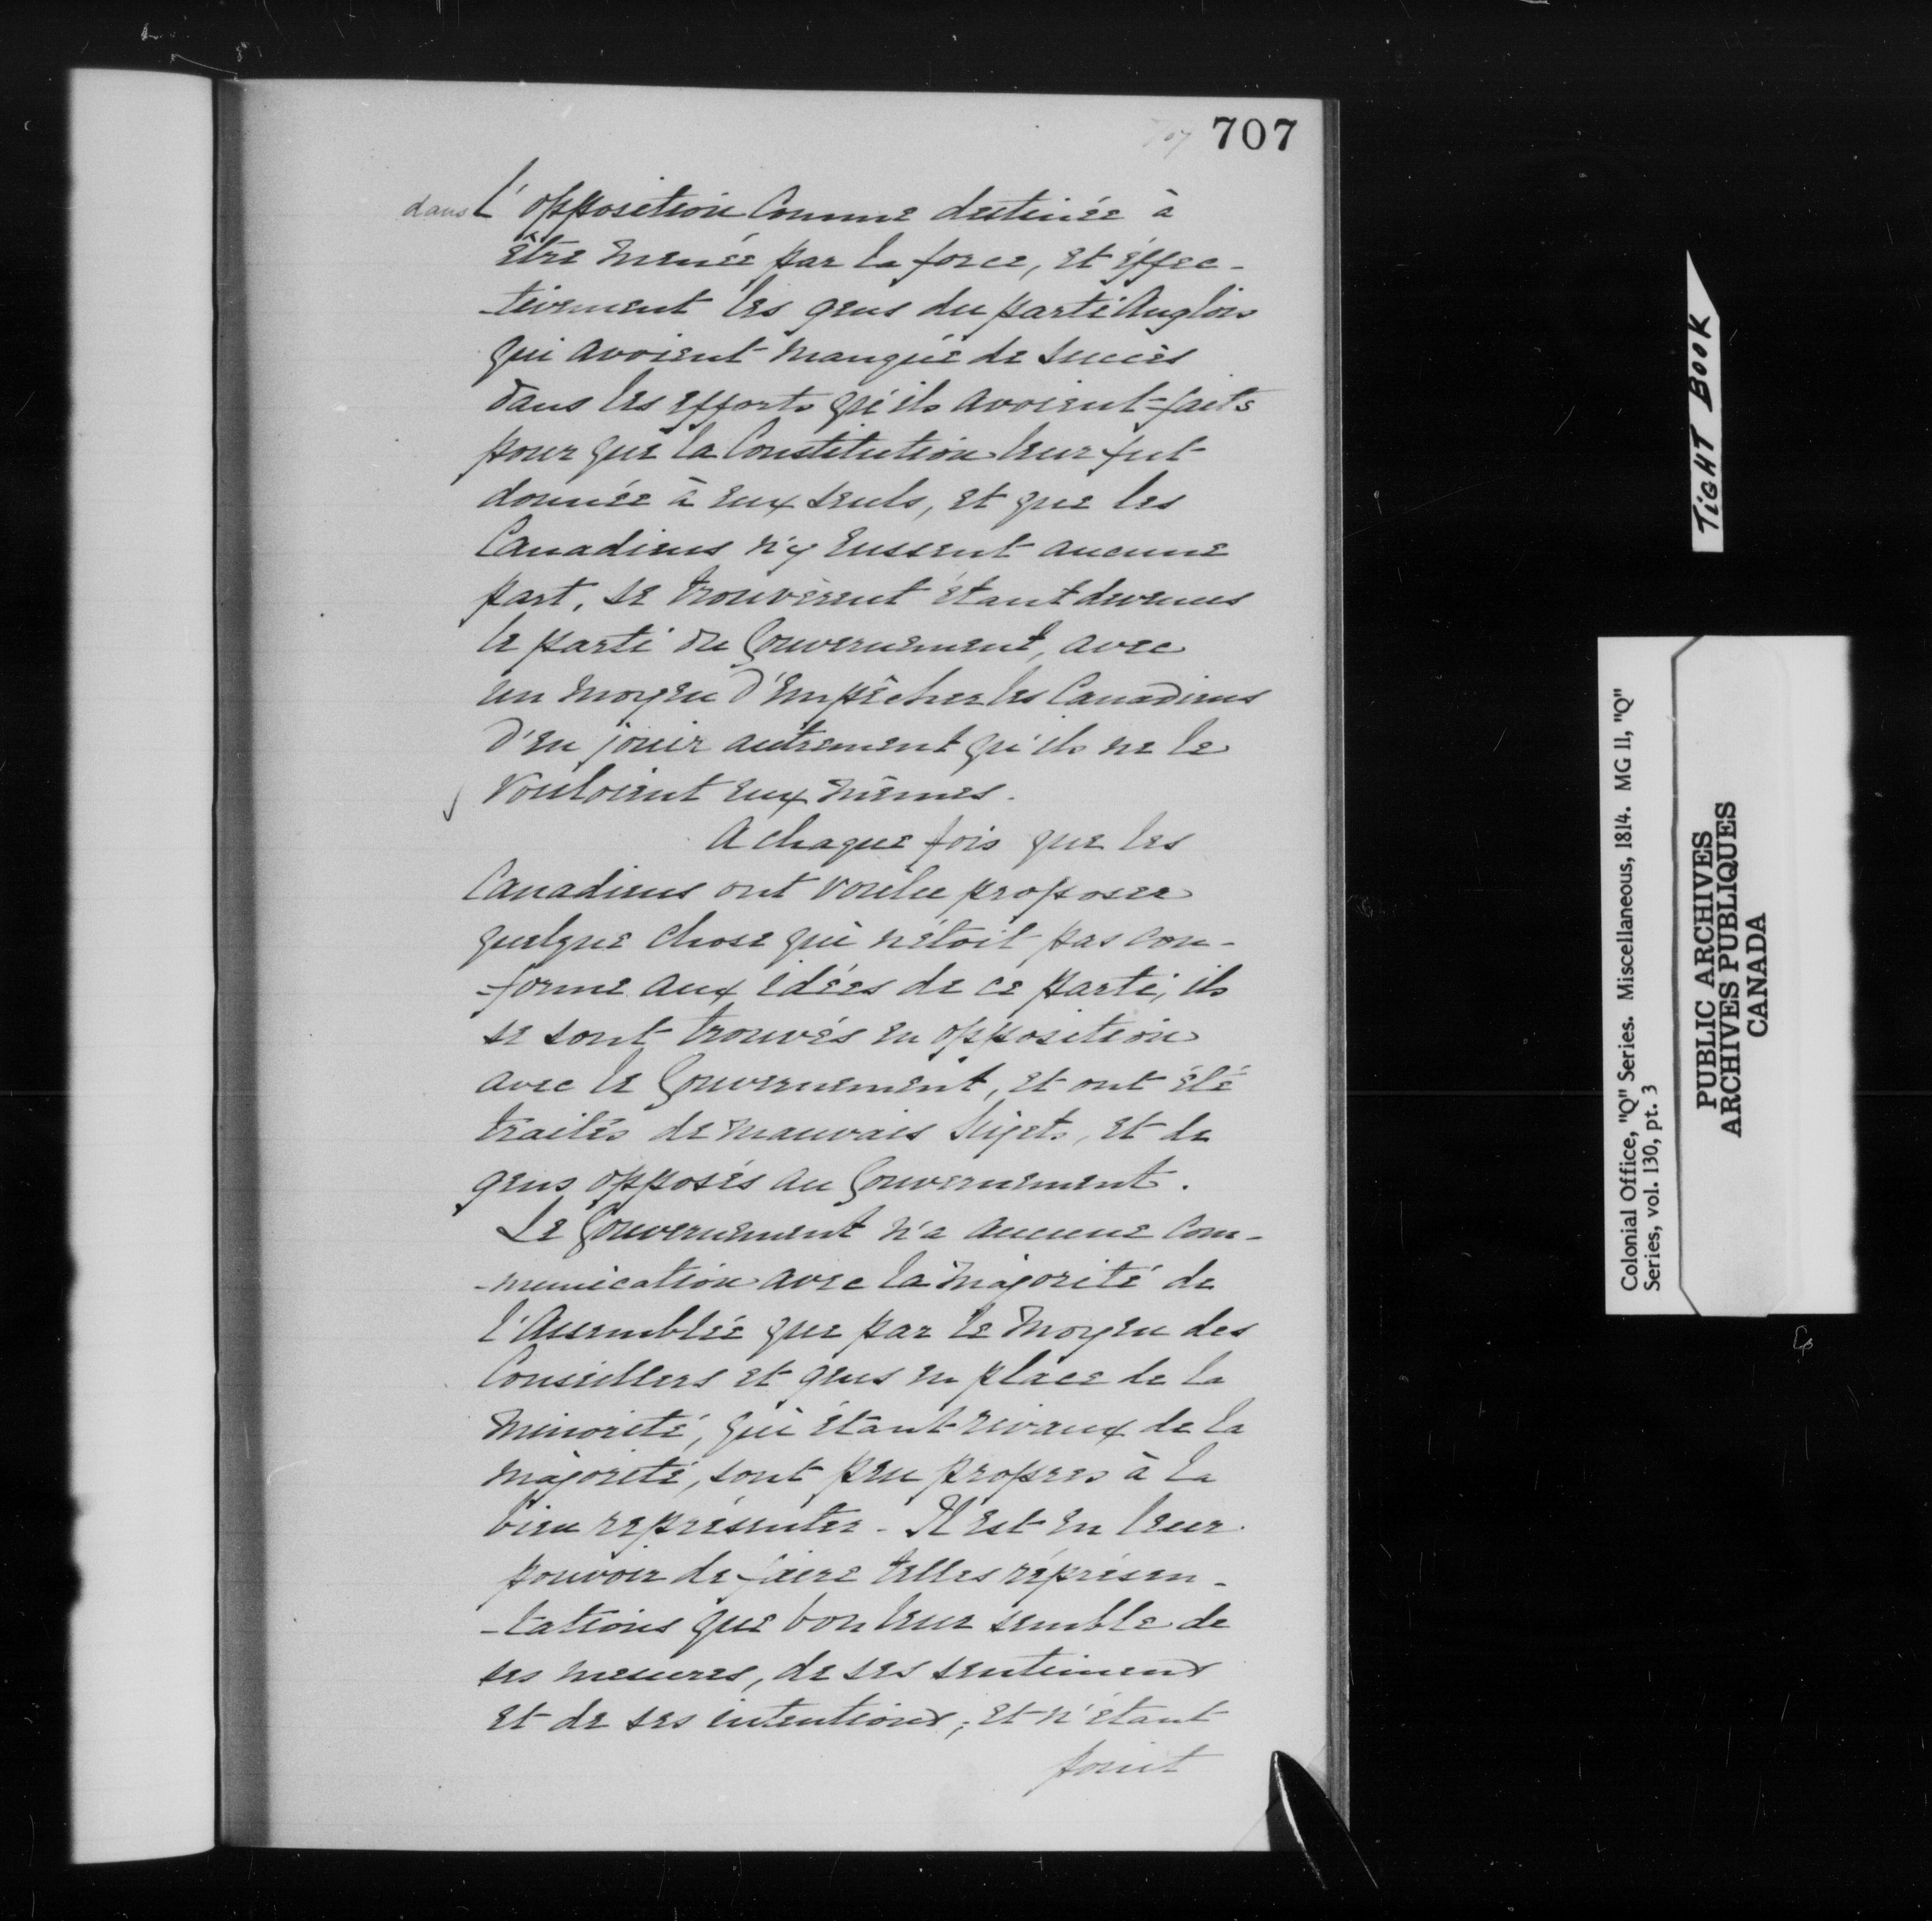 707 707
dans l'opposition comme destinée à
être menée par la force, et éffec-
-tivement les gens du parti Anglois
qui avoient manqué de succès
dans les efforts qu'ils avoient faits
pour que la Constitution leur fut
donnée à eux seuls, et que les
Canadiens n'y eussent aucune
part, se trouvèrent étant devenus
le parti du Gouvernement, avec
un moyen d'empêcher les Canadiens
d'en jouir autrement qu'ils ne le
vouloient eux mêmes.
A chaque fois que les
Canadiens ont voulu proposer
quelque chose qui n'étoit pas con-
-forme aux idées de ce parti, ils
se sont trouvés en opposition
avec le Gouvernement, et ont été
traités de mauvais Sujets, et de
gens opposés au Gouvernement.
Le Gouvernement n'a aucune com-
-munication avec la majorité de
l'Assemblée que par le moyen des
Conseillers et gens en place de la
minorité, qui étant rivaux de la
majorité, sont peu propres à la
bien représenter - Il est en leur
pouvoir de faire telles représen-
-tations que bon leur semble de
ses mesures, de ses sentimens
et de ses intentions; et n'étant
point
TIGHT BOOK
Colonial Office, "Q" Series. Miscellaneous, 1814. MG 11, "Q"
Series, vol. 130, pt. 3
PUBLIC ARCHIVES
ARCHIVES PUBLIQUES
CANADA